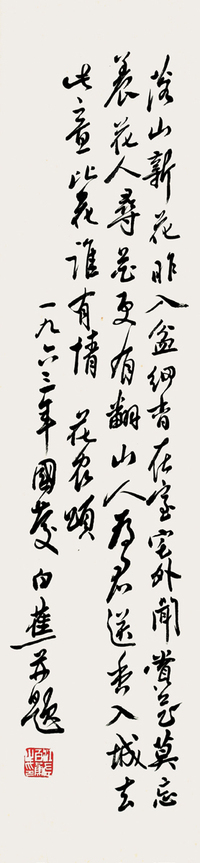 山新花昨入盆細香在室室外聞賞花莫忘
養花人尋花更有翻山人為君送香入城去
此意比花誰有情 花農頌
一九六三年國慶 白蕉并題